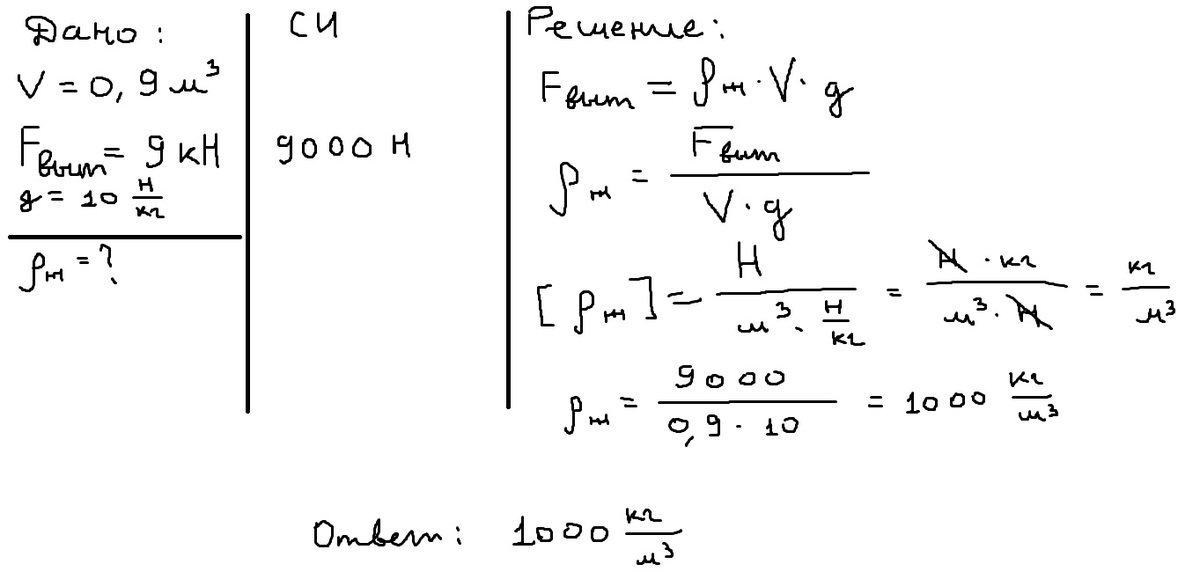 Дано:
V = 0,9 м³
Fвыт = 9 кН
g = 10 Н/кг
ρж = ?
СИ
9000 Н
Решение:
Fвыт = ρж · V · g
ρж = Fвыт / V · g
[ρж] = Н / м³ · Н/кг = Н · кг / м³ · Н = кг / м³
ρж = 9000 / 0,9 · 10 = 1000 кг/м³
Ответ: 1000 кг/м³